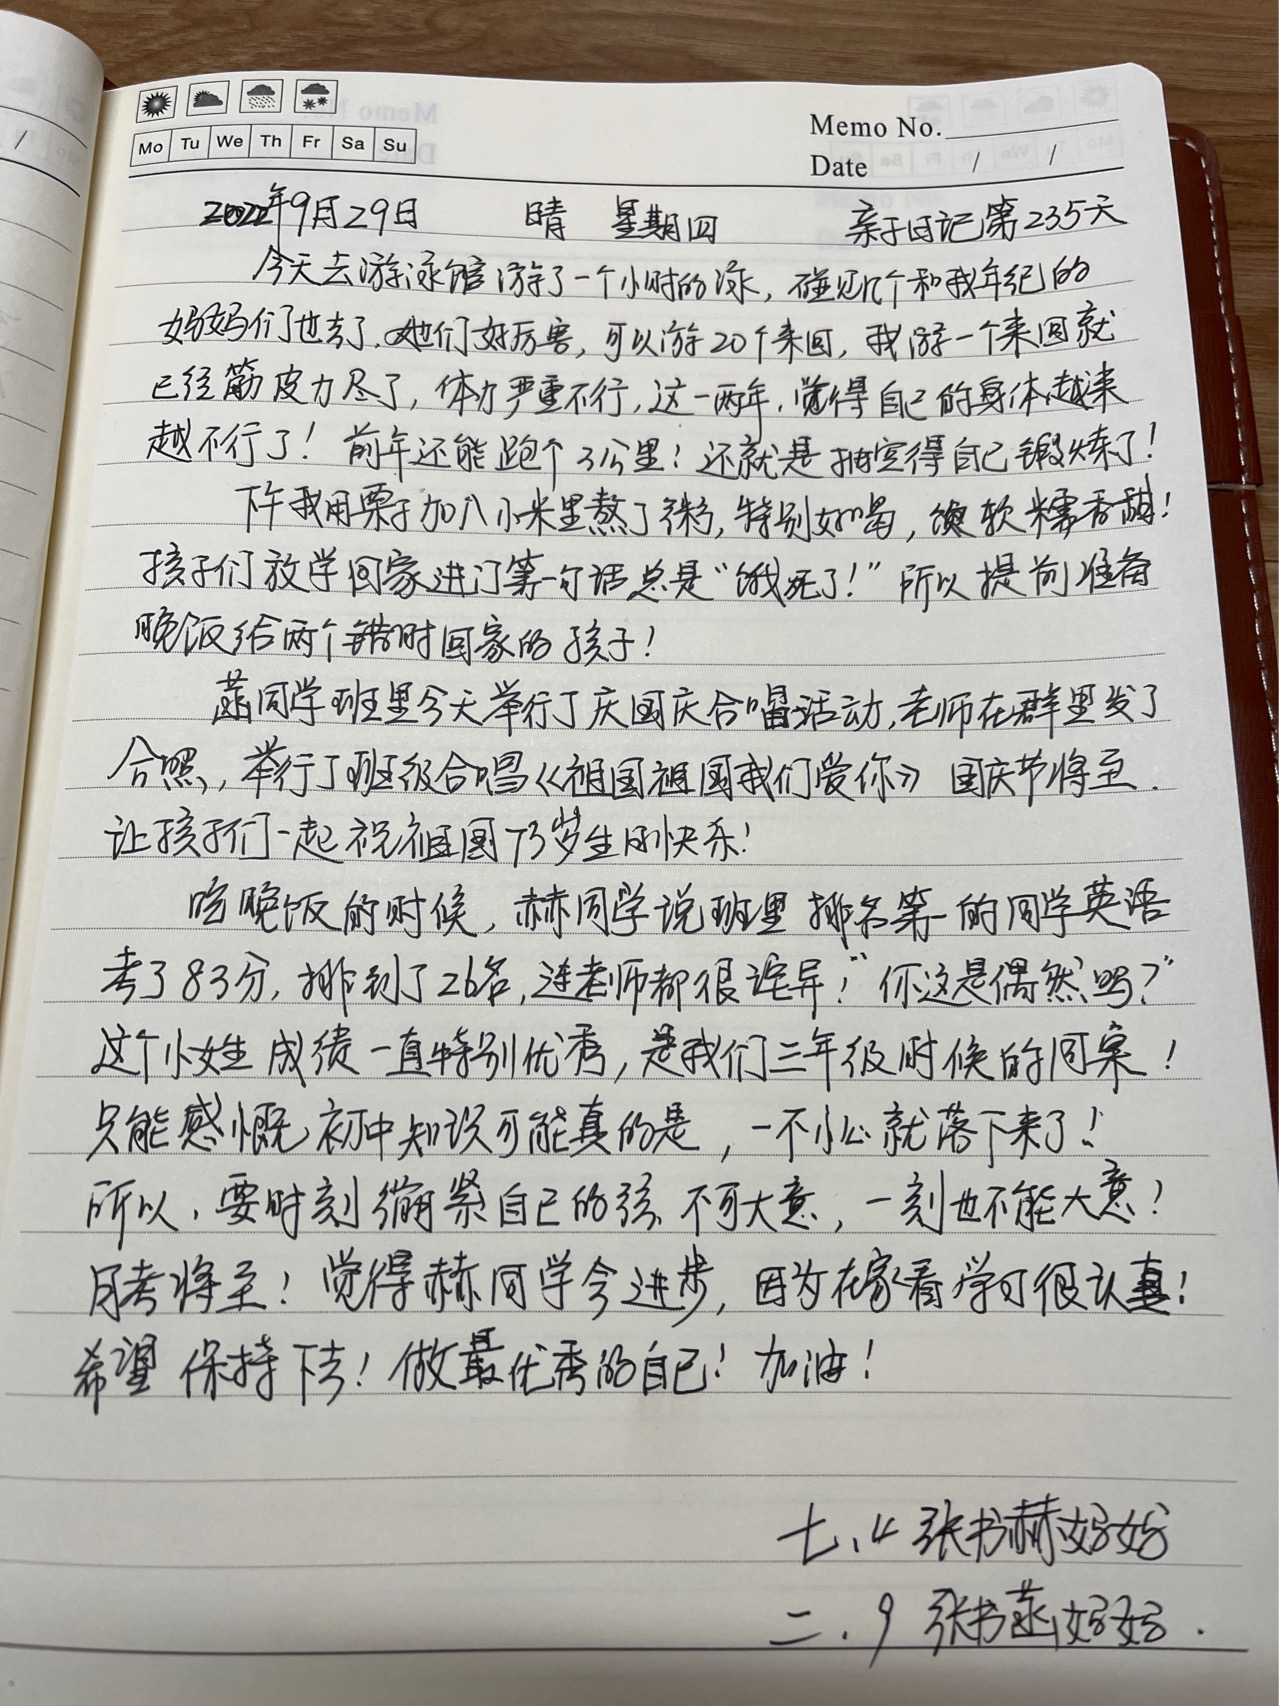 Mo Tu We Th Fr Sa Su
Memo No.
Date / /
2022年9月29日 晴 星期四 亲子日记第235天
今天去游泳馆游了一个小时的泳，碰见几个和我年纪的
妈妈们也去了，她们好厉害，可以游20个来回，我游一个来回就
已经筋皮力尽了，体力严重不行，这一两年，觉得自己的身体越来
越不行了！前年还能跑个3公里！还就是抽空得自己锻炼了！
下午我用栗子加入小米里熬了粥，特别好喝，软糯香甜！
孩子们放学回家进门第一句话总是“饿死了！”所以提前准备
晚饭给两个错时回家的孩子！
菡同学班里今天举行了庆国庆合唱活动，老师在群里发了
合照，举行了班级合唱《祖国祖国我们爱你》国庆节将至．
让孩子们一起祝祖国73岁生日快乐！
吃晚饭的时候，赫同学说班里排名第一的同学英语
考了83分，排到了26名，连老师都很诧异！“你这是偶然吗？”
这个小女生成绩一直特别优秀，是我们三年级时候的同桌！
只能感慨初中知识可能真的是，一不小心就落下来了！
所以，要时刻绷紧自己的弦，不可大意，一刻也不能大意！
月考将至！觉得赫同学会进步，因为在家看学习很认真！
希望保持下去！做最优秀的自己！加油！
七.4 张书赫妈妈
二.9 张书菡妈妈.